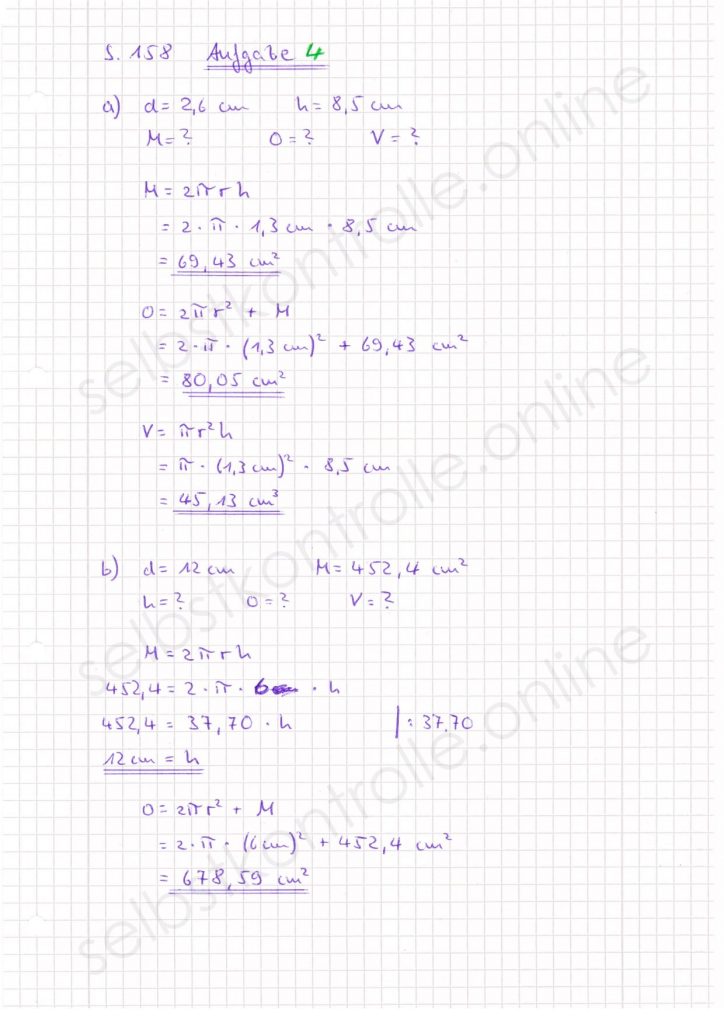 S. 158 Aufgabe 4
a) d = 2,6 cm h = 8,5 cm
M = ? O = ? V = ?
M = 2πrh
= 2 · π · 1,3 cm · 8,5 cm
= 69,43 cm²
O = 2πr² + M
= 2 · π · (1,3 cm)² + 69,43 cm²
= 80,05 cm²
V = πr²h
= π · (1,3 cm)² · 8,5 cm
= 45,13 cm³
b) d = 12 cm M = 452,4 cm²
h = ? O = ? V = ?
M = 2πrh
452,4 = 2 · π · 6 · h
452,4 = 37,70 · h |: 37.70
12 cm = h
O = 2πr² + M
= 2 · π · (6 cm)² + 452,4 cm²
= 678,59 cm²
selbstkontrolle.online
selbstkontrolle.online
selbstkontrolle.online